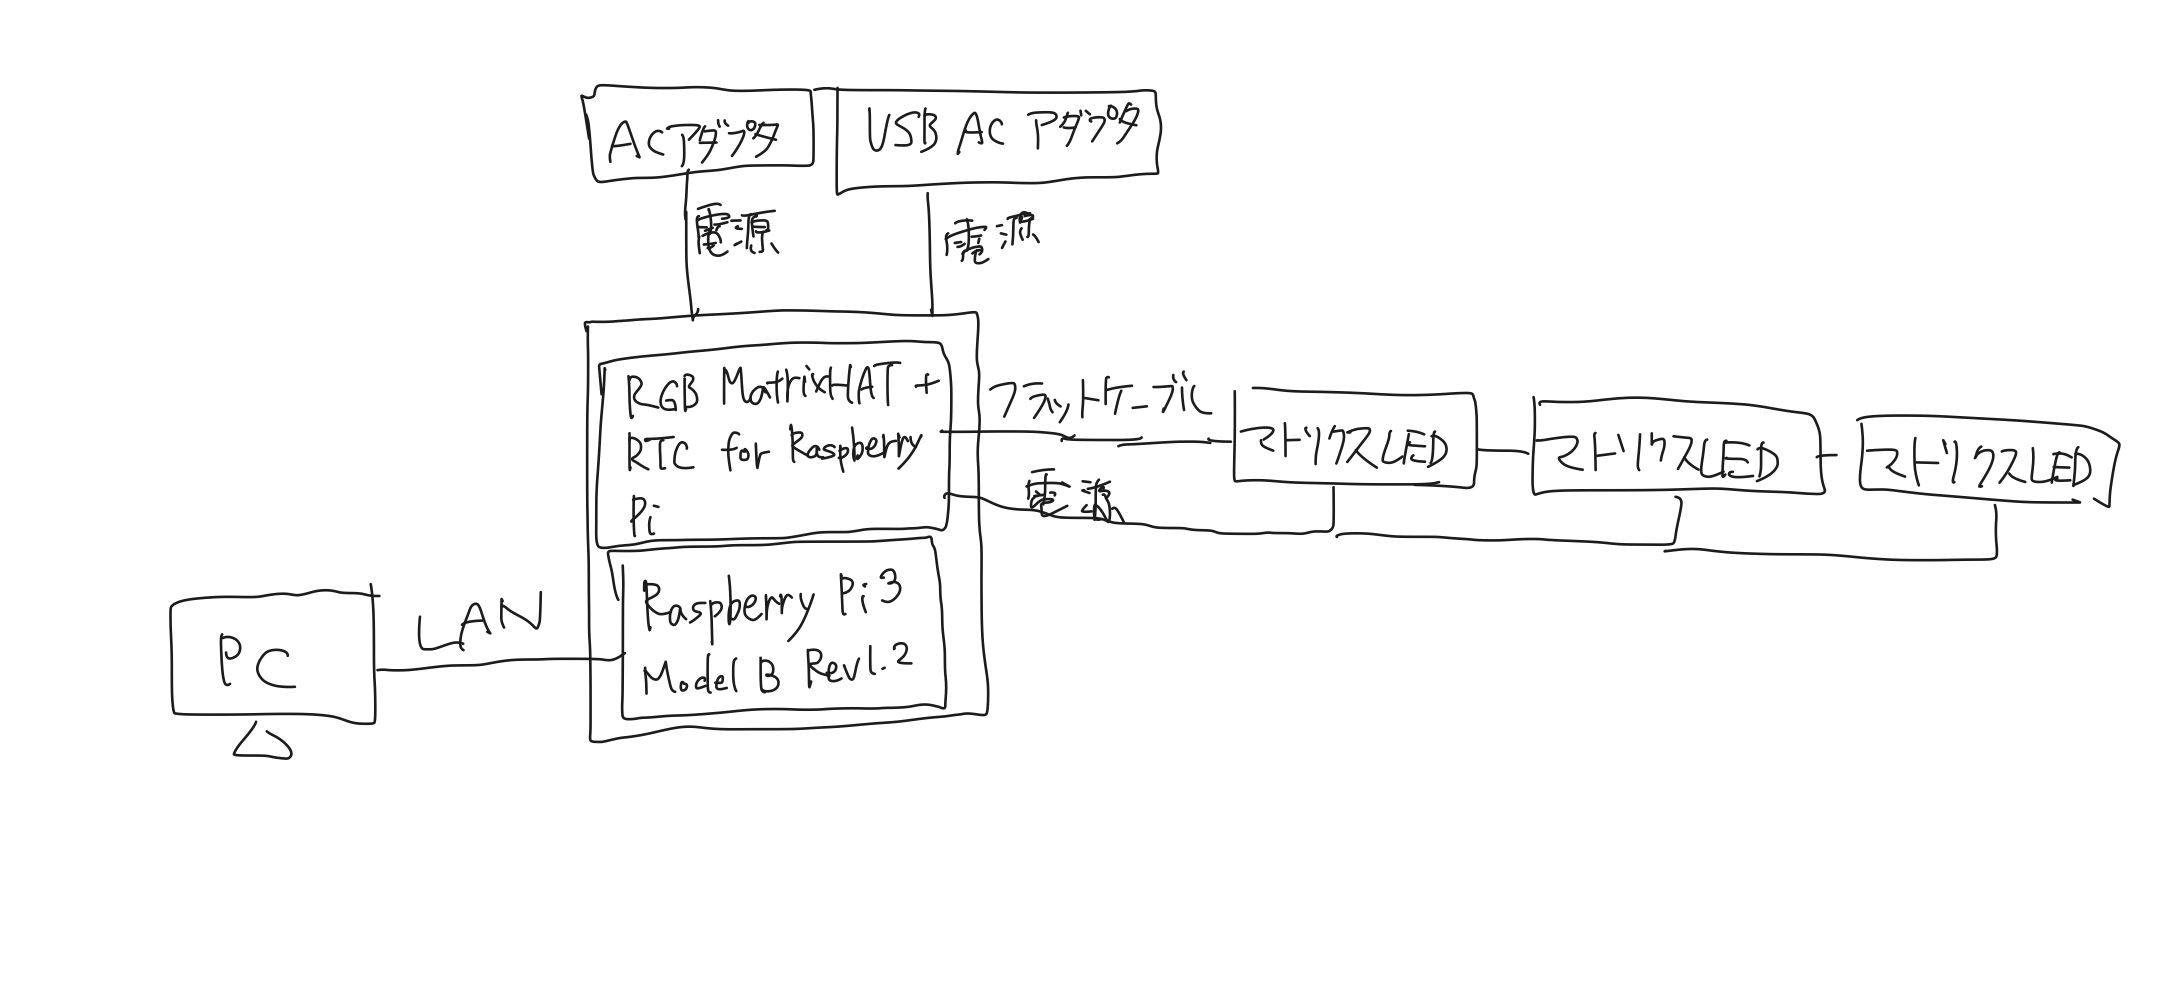 ACアダプタ
USB AC アダプタ
電源
電源
RGB MatrixHAT +
RTC for Raspberry
Pi
フラットケーブル
マトリクスLED
マトリクスLED
マトリクスLED
電源
Raspberry Pi3
Model B Rev1.2
LAN
PC